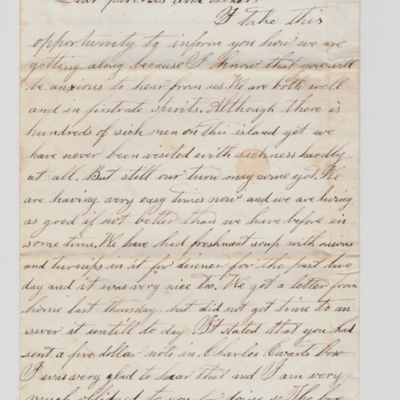 Dear parents and sister.
I take this
opportunity to inform you how we are
getting along because I know that you will
be anxious to hear from us. We are both well
and in firstrate spirits. Although there is
hundreds of sick men on this island yet we
have never been visited with sickness hardly
at all. But still our turn may come yet. We
are having very easy times now and we are living
as good if not better than we have before in
some time. We have had fresh meat soup with
and turnips in it for dinner for the past two
day and it was very nice too. We got a letter from
home last thursday but did not get time to an
swer it untill to day. It stated that you had
sent a five dollar note in Charles Box
I was very glad to hear that and I am very
much obliged to you for doing so. The box